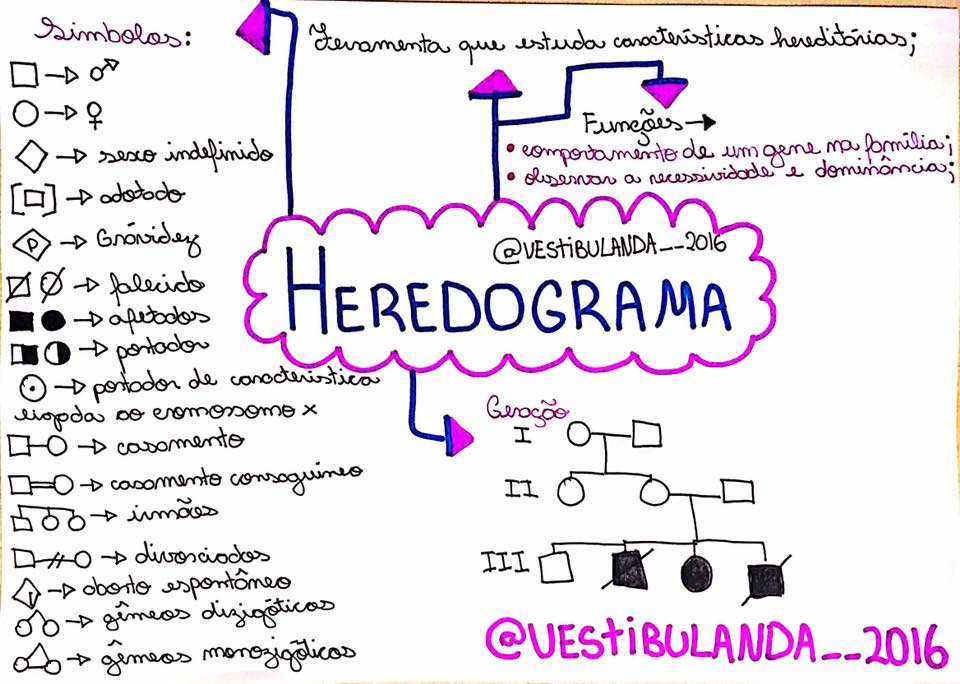 Símbolos:
♂
♀
sexo indefinido
adotado
P
Grávidez
falecido
afetados
portador
portador de característica
ligada ao cromossomo x
casamento
casamento consaguíneo
irmãos
divorciados
aborto espontâneo
gêmeos dizigóticos
gêmeos monozigóticos
que estuda características hereditárias;
Funções
• comportamento de um gene na família;
• observar a recessividade e dominância;
@VESTIBULANDA__2016
HEREDOGRAMA
Geração
I
II
III
@VESTIBULANDA__2016